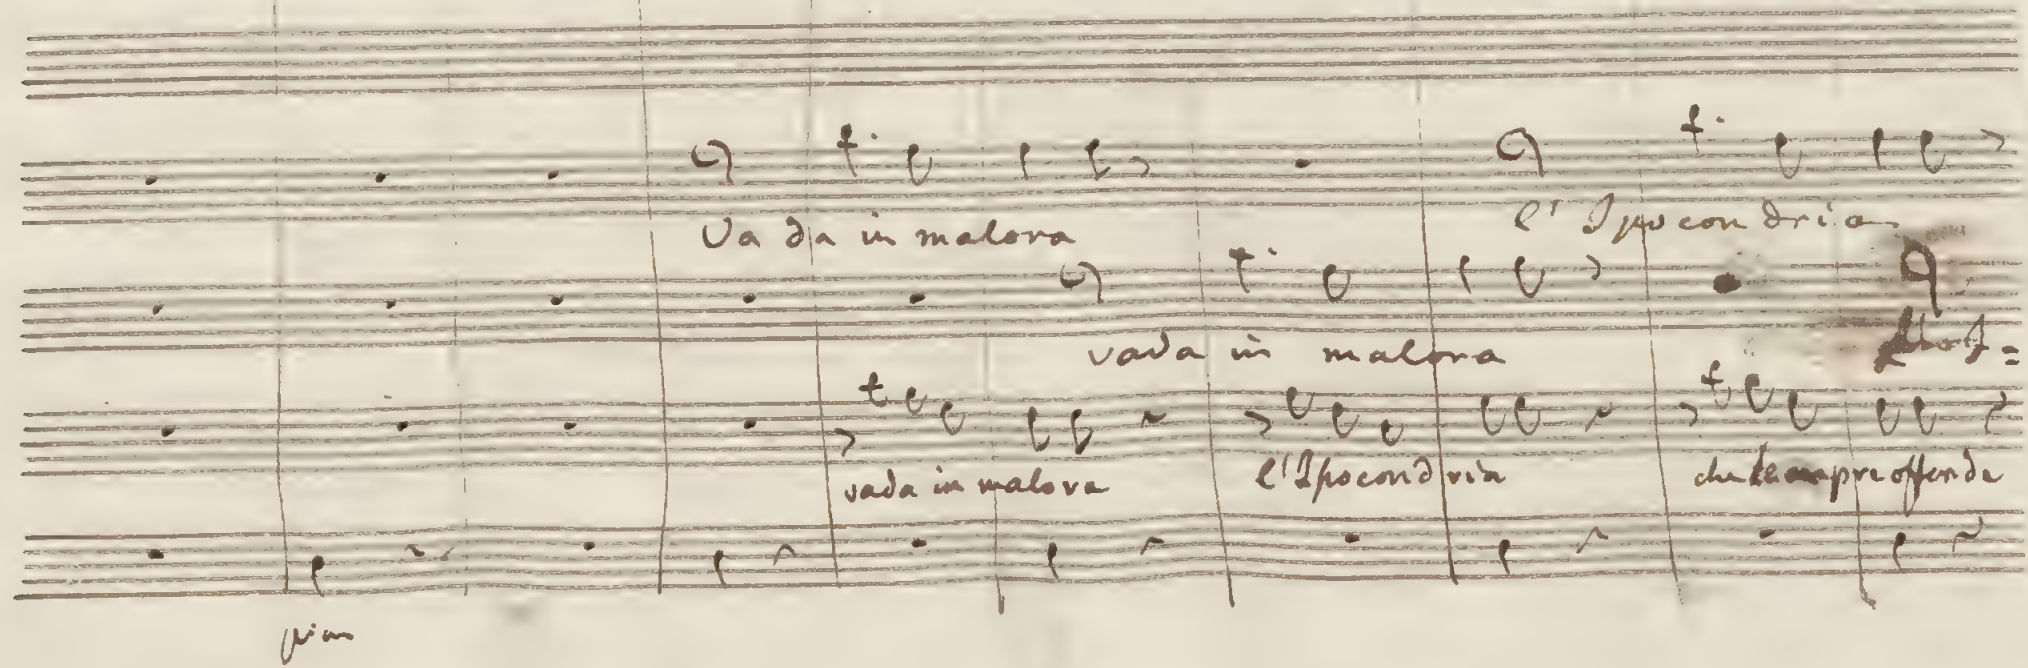 Va da in malora
l' Ipo con dria
vada in malora
vada in malora
l' Ipocondria
che sempre offende
pian